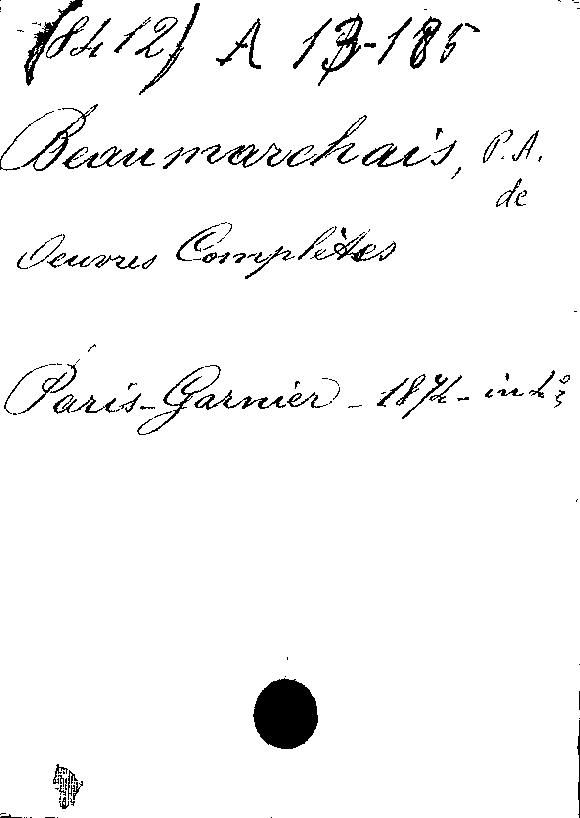 (8412) A 13-185
Beaumarchais, P. A. de
Oeuvres Complètes
Paris - Garnier - 1874 - in 4º